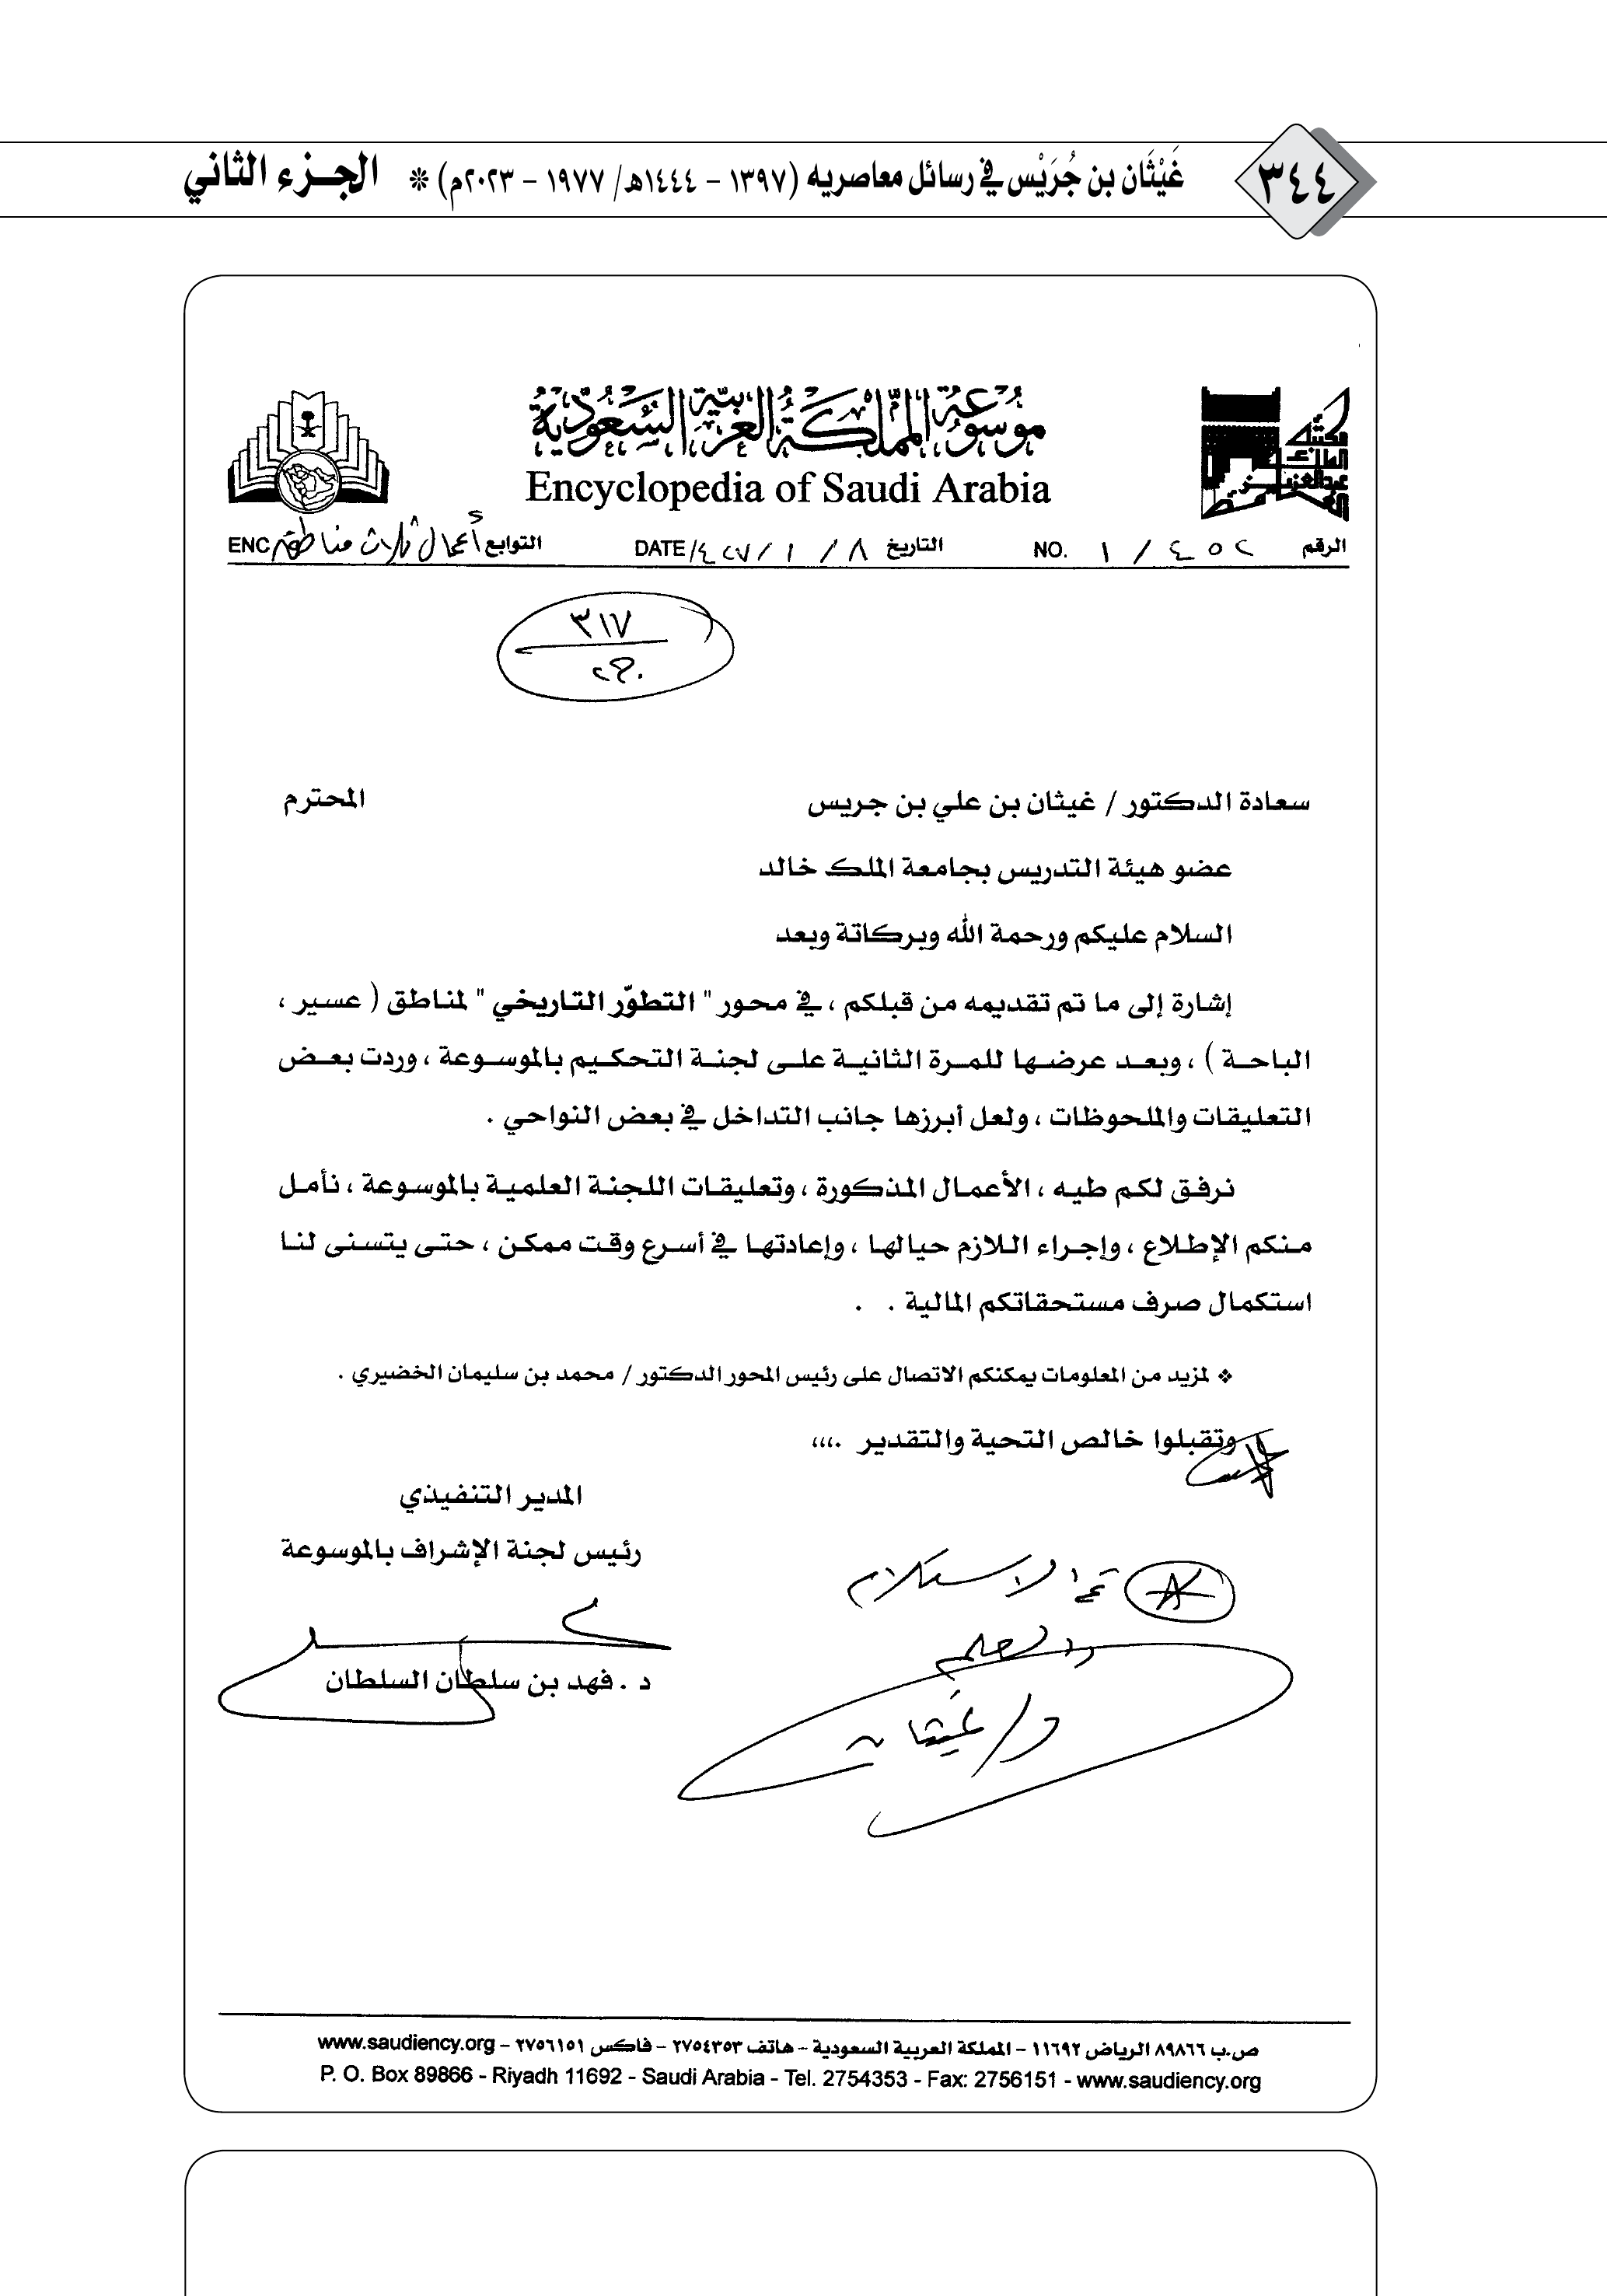 ٣٤٤
غَيْثَان بن جُرَيْس في رسائل معاصريه (١٣٩٧ - ١٤٤٤هـ/ ١٩٧٧ - ٢٠٢٣م) * الجزء الثاني
مكتبة الملك عبدالعزيز العامة
موسوعة المملكة العربية السعودية
Encyclopedia of Saudi Arabia
الرقم ١/٤٥٢ NO. التاريخ ٨/١/٤٢٧ DATE التوابع أعمال ثلاث مناطق ENC
٣١٧
سعادة الدكتور / غيثان بن علي بن جريس المحترم
عضو هيئة التدريس بجامعة الملك خالد
السلام عليكم ورحمة الله وبركاتة وبعد
إشارة إلى ما تم تقديمه من قبلكم ، في محور " التطوّر التاريخي " لمناطق ( عسير ،
الباحة ) ، وبعد عرضها للمرة الثانية على لجنة التحكيم بالموسوعة ، وردت بعض
التعليقات والملحوظات ، ولعل أبرزها جانب التداخل في بعض النواحي .
نرفق لكم طيه ، الأعمال المذكورة ، وتعليقات اللجنة العلمية بالموسوعة ، نأمل
منكم الإطلاع ، وإجراء اللازم حيالها ، وإعادتها في أسرع وقت ممكن ، حتى يتسنى لنا
استكمال صرف مستحقاتكم المالية . .
❖ لمزيد من المعلومات يمكنكم الاتصال على رئيس المحور الدكتور / محمد بن سليمان الخضيري .
وتقبلوا خالص التحية والتقدير .،،،
المدير التنفيذي
رئيس لجنة الإشراف بالموسوعة
د . فهد بن سلطان السلطان
تم الاستلام
د/ غيثان
ص.ب ٨٩٨٦٦ الرياض ١١٦٩٢ - المملكة العربية السعودية - هاتف ٢٧٥٤٣٥٣ - فاكس ٢٧٥٦١٥١ - www.saudiency.org
P. O. Box 89866 - Riyadh 11692 - Saudi Arabia - Tel. 2754353 - Fax: 2756151 - www.saudiency.org